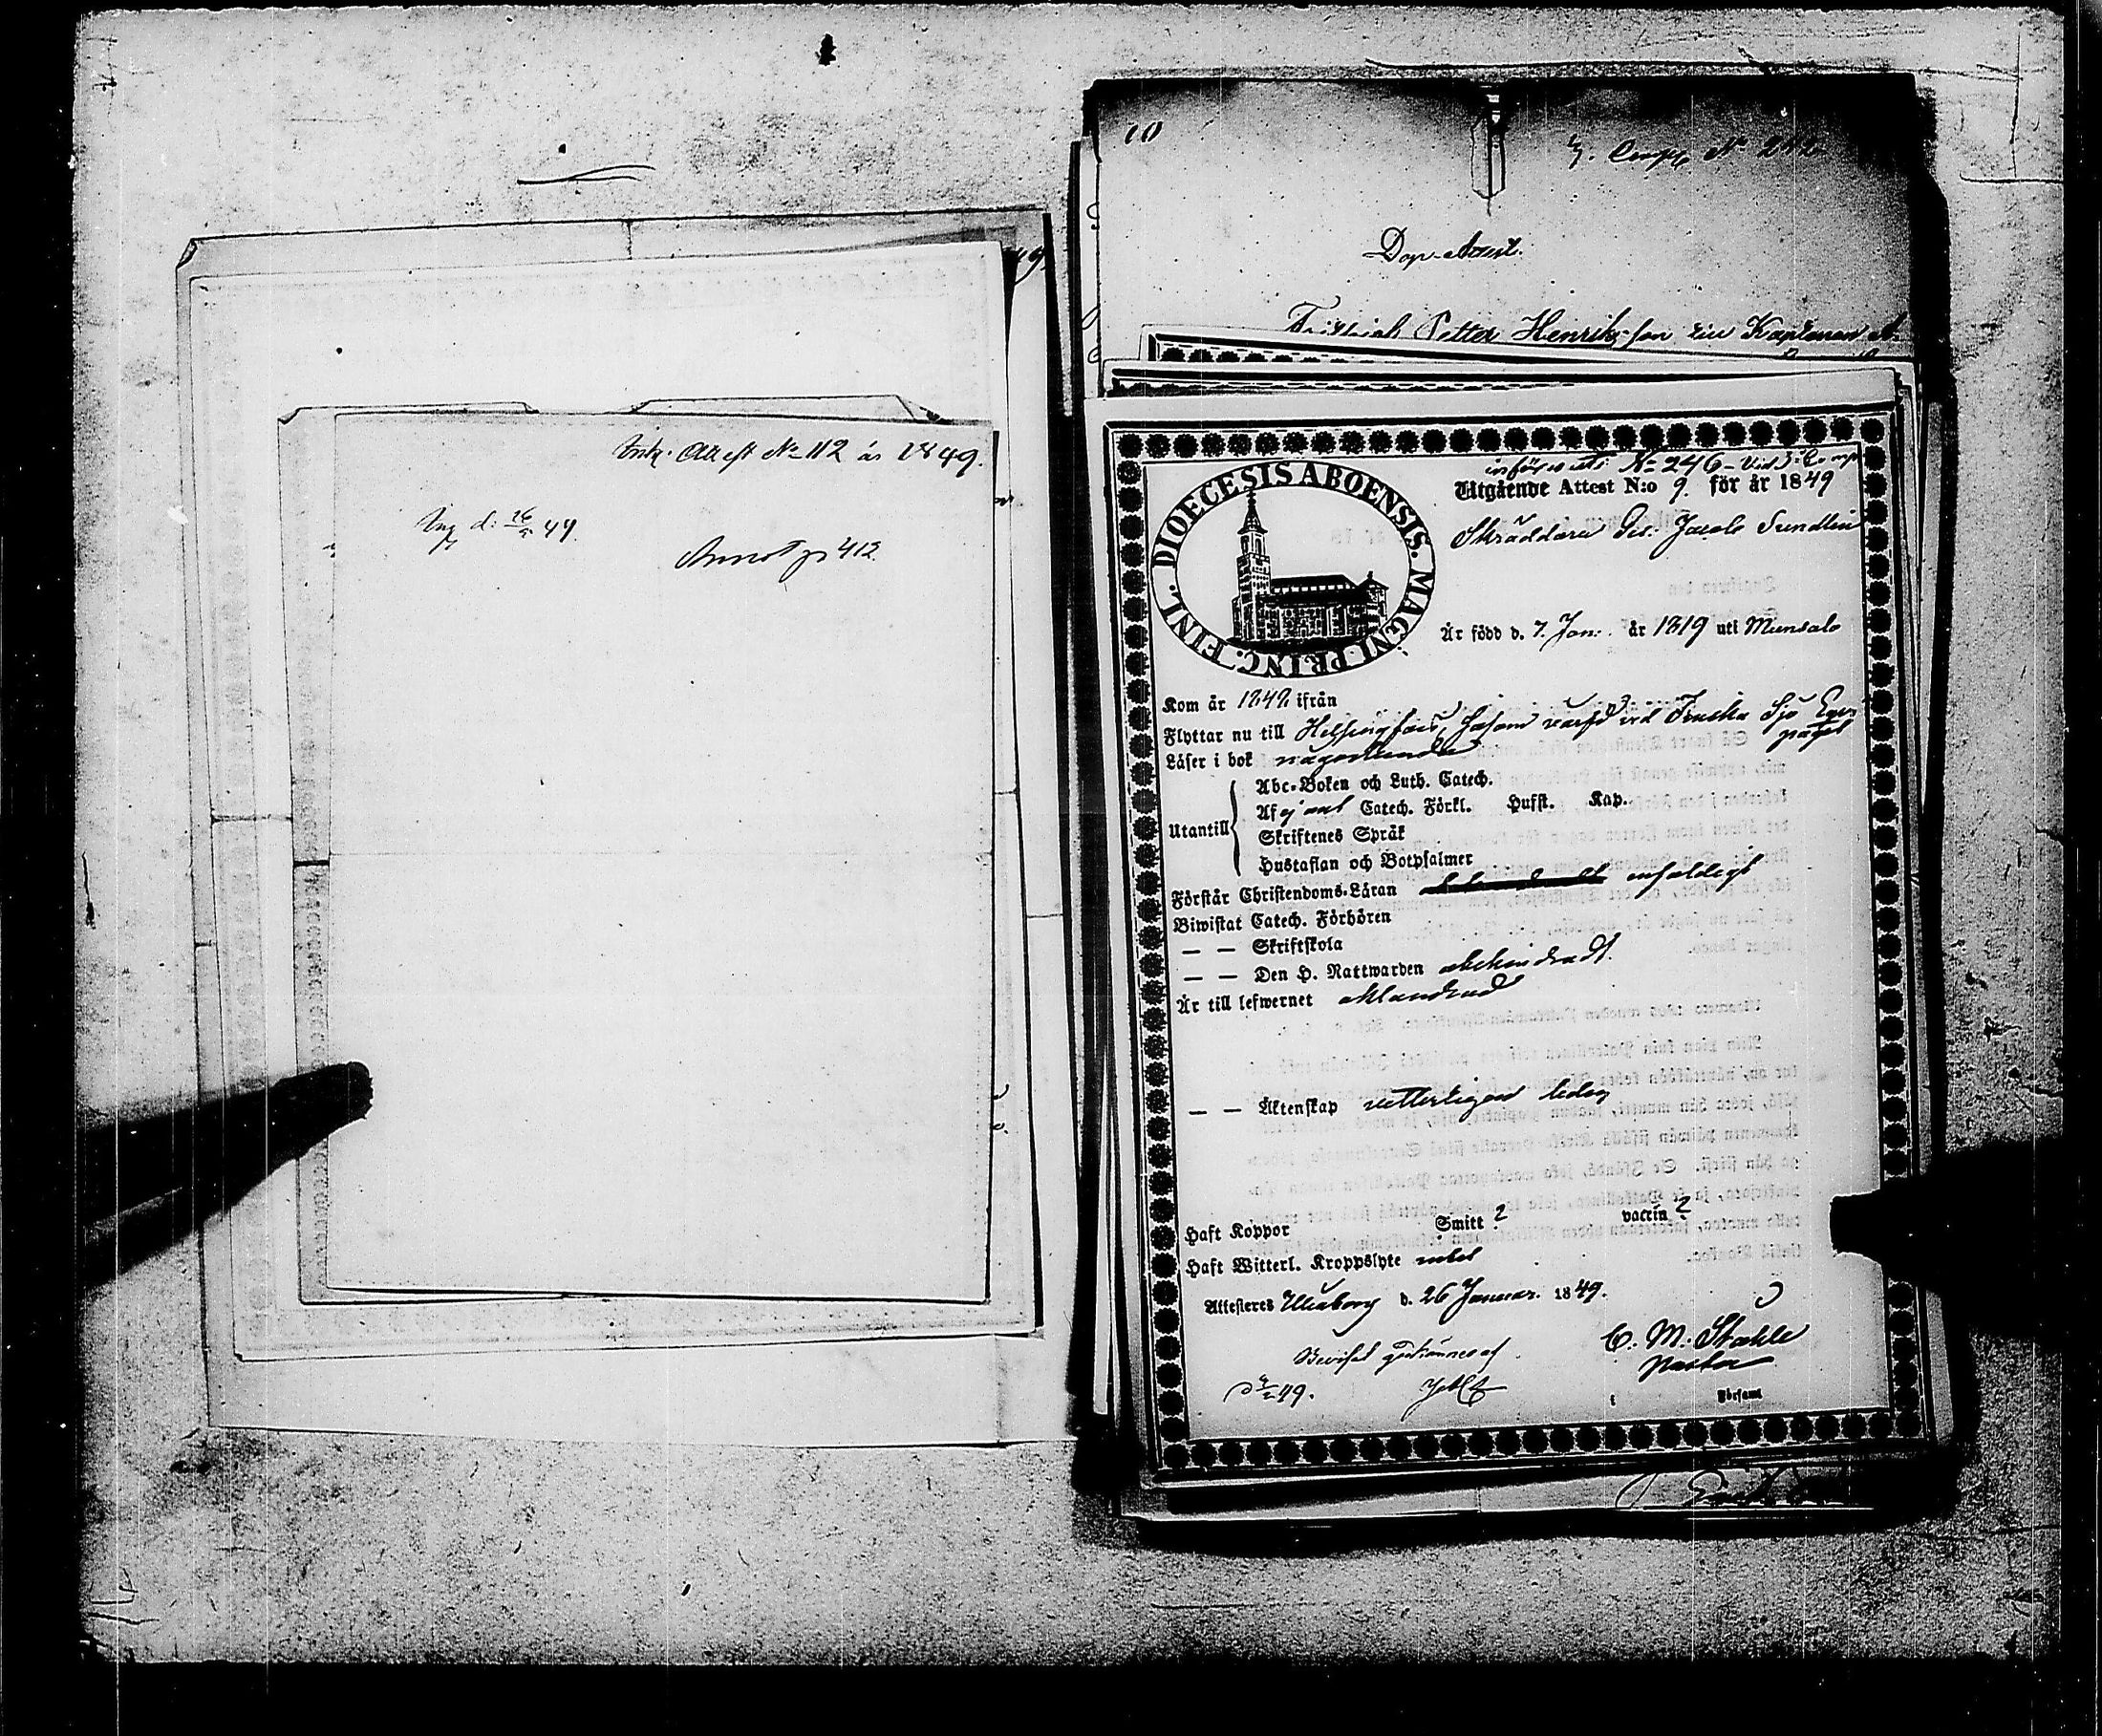 Ink. Attest No 112 år 1849.
Ing. d: 26/2 49.
Annot p 412.
10
3. Comp. No 242
Dop-Attest.
Fridrich Petter Henriksson
DIOECESIS ABOENSIS. MAGNI PRINC. FINL.
införes uti No 246 vid 3. Comp
Utgående Attest N:o 9. för år 1849
Skräddare Ges: Jacob Sundlin
Är född d. 7. Jan. år 1819 uti Munsala
Kom år 1842 ifrån
Flyttar nu till Helsingfors, såsom värfd vid Finska Sjö Equi-
paget
Läser i bok någorlunda
Utantill
Abc-Boken och Luth. Catech.
Af ej ant Catech. Förkl. Hufst. Kap.
Skriftenes Språk
Hustaflan och Botpsalmer
Förstår Christendoms-Läran enfaldigt
Biwistat Catech. Förhören
— — Skriftskola
— — Den H. Nattwarden obehindradt.
Är till lefwernet oklandrad
— — Äktenskap vetterligen ledig
Haft Koppor Smitt ? vaccin ?
Haft Witterl. Kroppslyte intet
Attesteres Uleåborg d. 26 Januar. 1849.
C. M. Stahle
Pastor
Beviset godkännes af
49.
i Församl